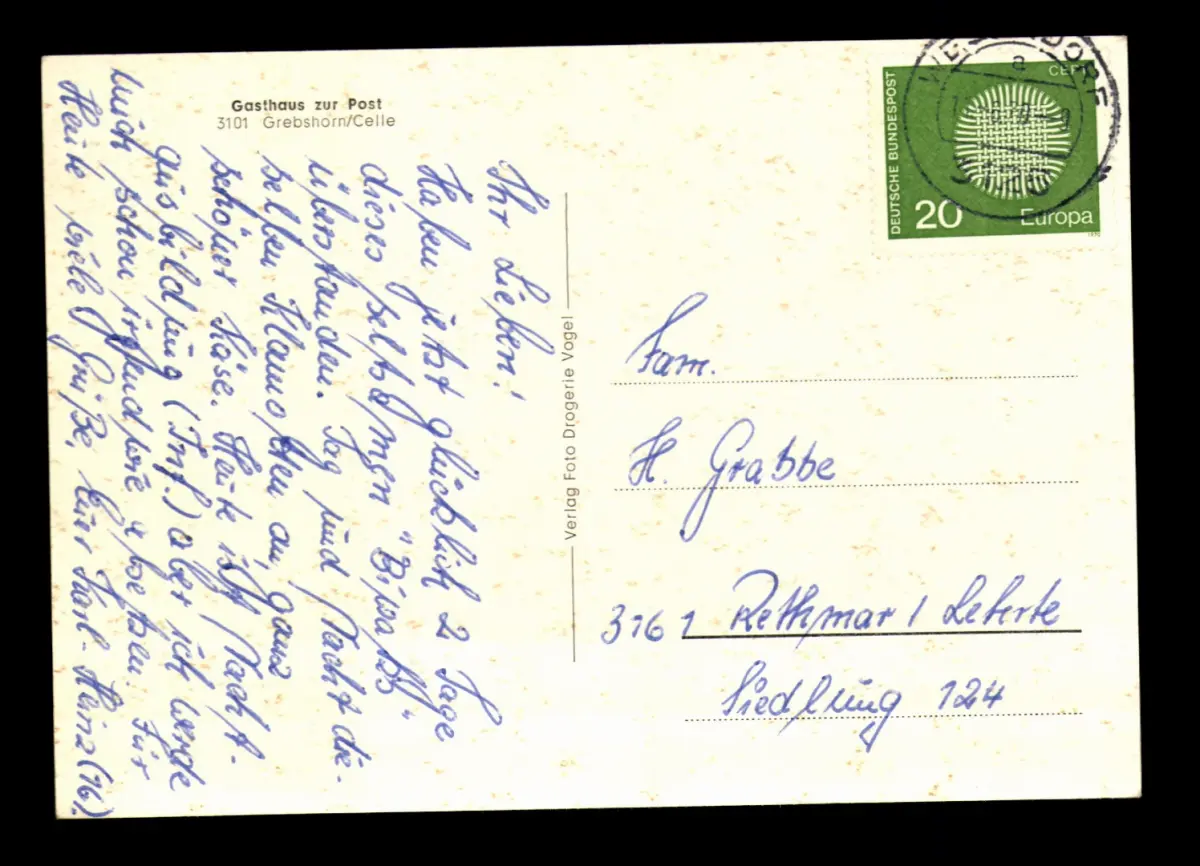 Gasthaus zur Post
3101 Grebshorn/Celle
Ihr Lieben!
Haben jetzt glücklich 2 Tage
dieses selbsd mgn "Biwaks"
überstanden. Tag und Nacht die-
selben Klamotten an, ganz
schöner Käse. Heute ist Nacht-
ausbildung (Inf.) aber ich werde
mich schon irgendwie absetzen. Für
Heute viele Grüße, Euer Karl-Heinz (16).
Verlag Foto Drogerie Vogel
DEUTSCHE BUNDESPOST
CEPT
20
Europa
1970
a
Fam.
H. Grabbe
3161 Rethmar / Lehrte
Siedlung 124